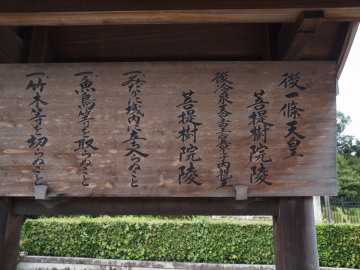 後一條天皇
菩提樹院陵
後冷泉天皇皇后章子内親王
菩提樹院陵
一みだりに域内に立ち入らぬこと
一魚鳥等を取らぬこと
一竹木等を切らぬこと